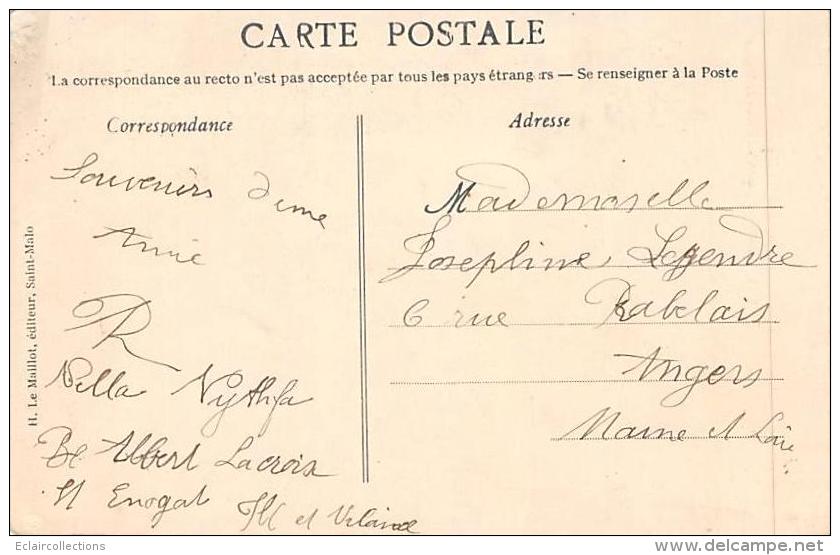 CARTE POSTALE
La correspondance au recto n'est pas acceptée par tous les pays étrangers — Se renseigner à la Poste
Correspondance
Souvenirs d'une
Amie
R
Villa Nythfa
Bd Albert Lacroix
St Enogat Ill et Vilaine
Adresse
Mademoiselle
Josephine Legendre
6 rue Rabelais
Angers
Maine et Loire
H. Le Maillot, éditeur, Saint-Malo
Eclaircollections
www.delcampe.net